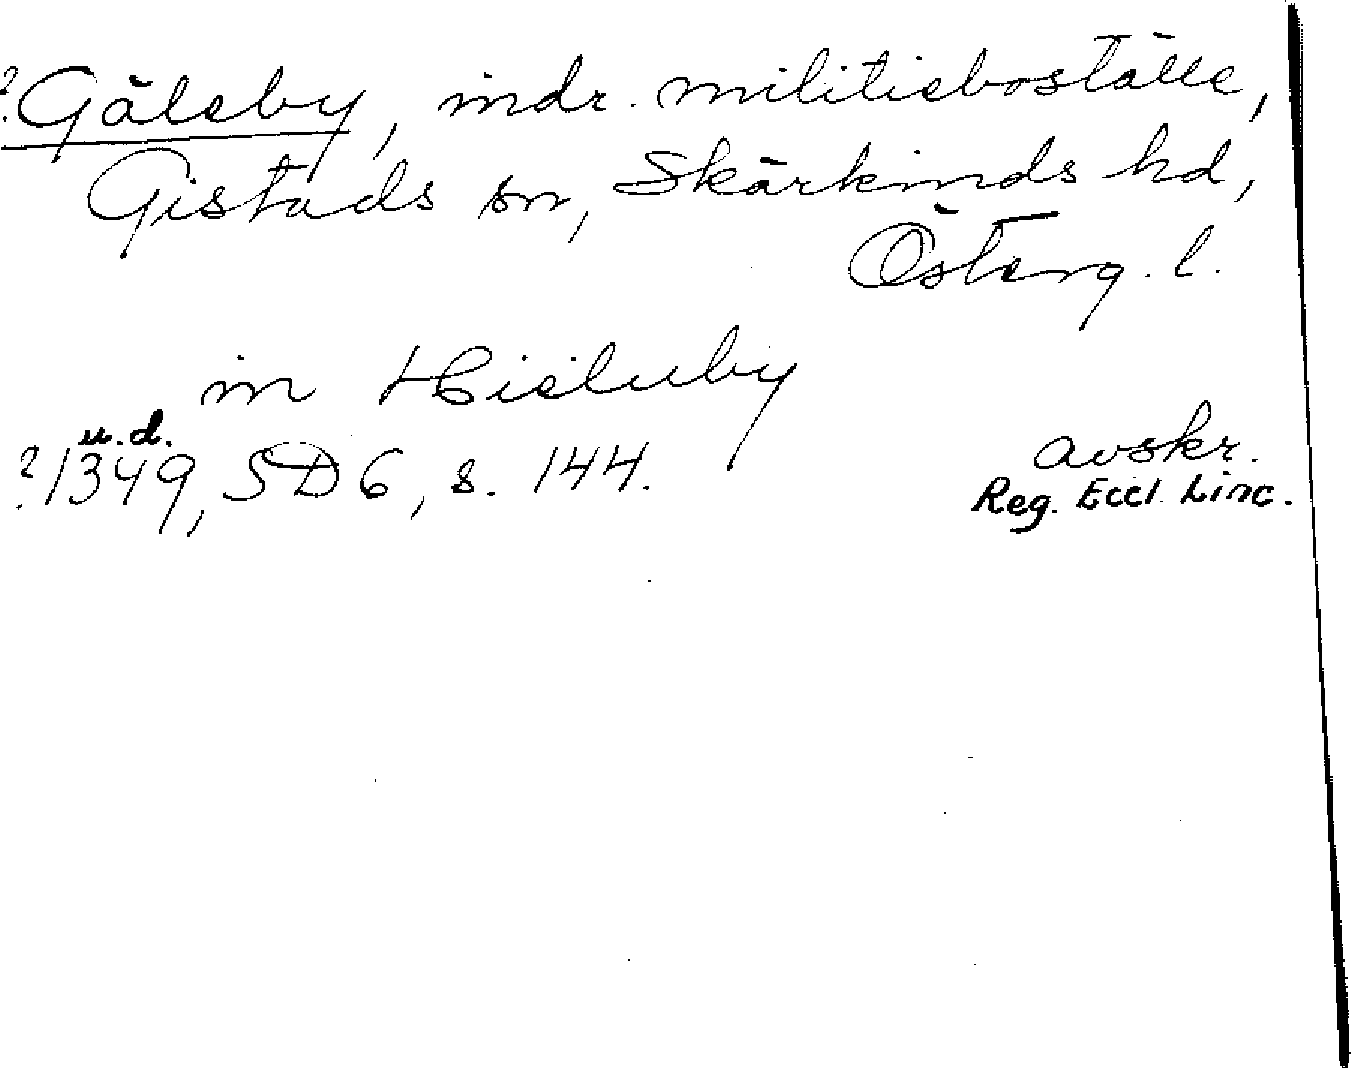 ?Gälsby, indr. militieboställe,
Gistads sn, Skärkinds hd,
Österg. l.
in Hisluby
u.d.
?1349, SD 6, s. 144.
avskr.
Reg. Eccl. Linc.